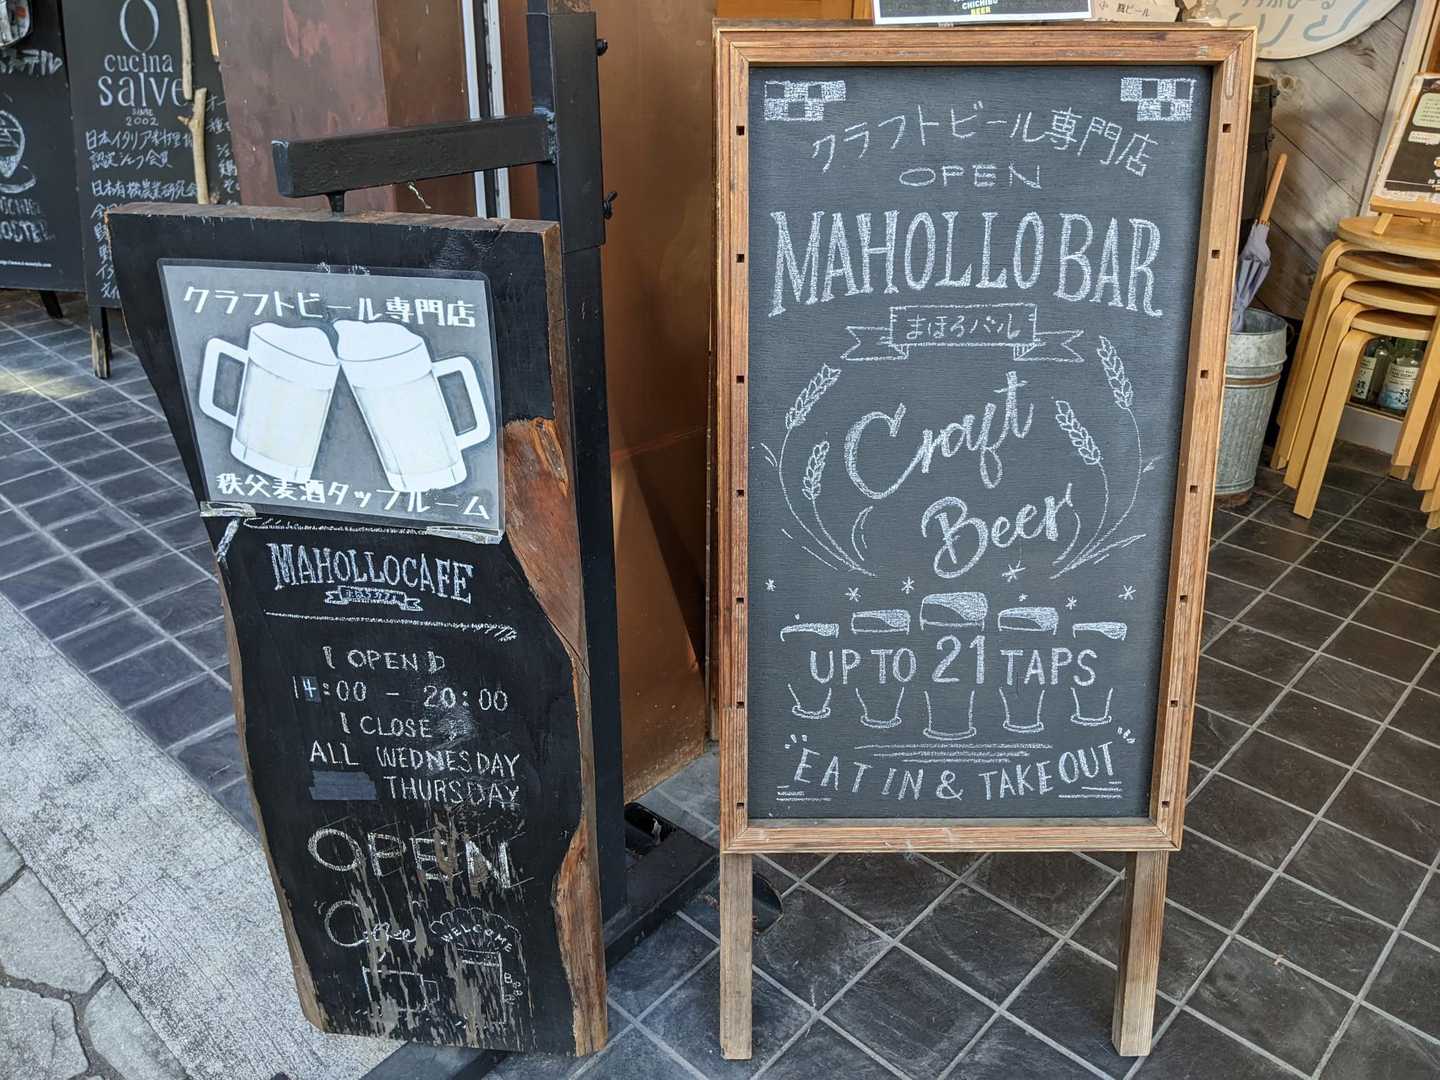 cucina
salve
SINCE
2002
日本イタリア料理協
認定シェフ会員
クラフトビール専門店
秩父麦酒タップルーム
MAHOLLOCAFE
まほろカフェ
OPEN
14:00 - 20:00
CLOSE
ALL WEDNESDAY
THURSDAY
OPEN
Coffee
WELCOME
CHICHIBU
BEER
クラフトビール専門店
OPEN
MAHOLLO BAR
まほろバル
Craft
Beer
UP TO 21 TAPS
"EAT IN & TAKE OUT"